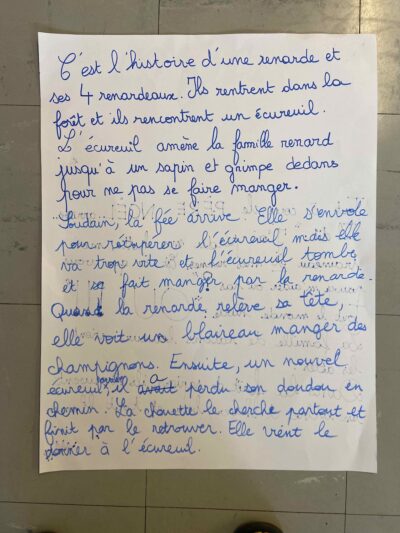 C'est l'histoire d'une renarde et
ses 4 renardeaux. Ils rentrent dans la
forêt et ils rencontrent un écureuil.
L'écureuil amène la famille renard
jusqu'à un sapin et grimpe dedans
pour ne pas se faire manger.
Soudain, la fée arrive. Elle s'envole
pour récupérer l'écureuil mais elle
va trop vite et l'écureuil tombe
et se fait manger par la renarde.
Quand la renarde relève sa tête,
elle voit un blaireau manger des
champignons. Ensuite, un nouvel
écureuil, il a perdu son doudou en
chemin. La chouette le cherche partout et
finit par le retrouver. Elle vient le
donner à l'écureuil.